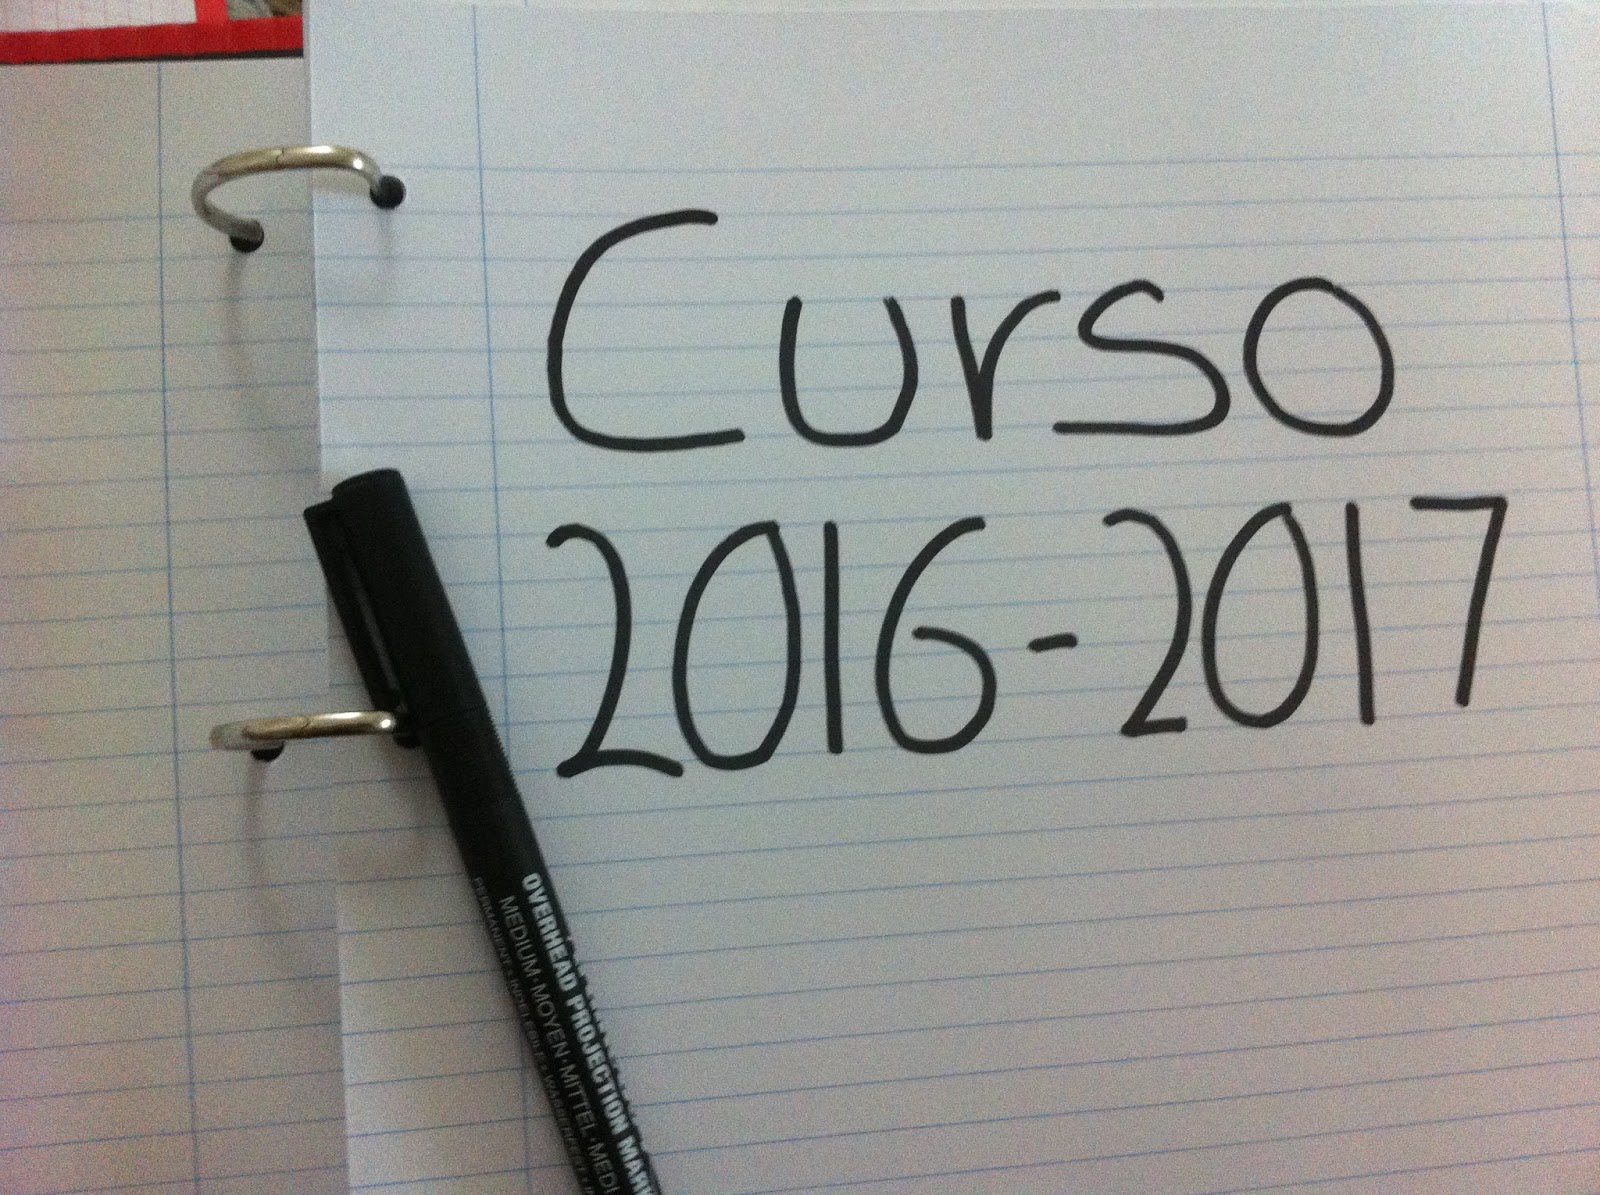 Curso
2016-2017
OVERHEAD PROJECTION MARK
MEDIUM·MOYEN·MITTEL·MEDI
PERMANENT·INDELEBILE·WASSERFEST